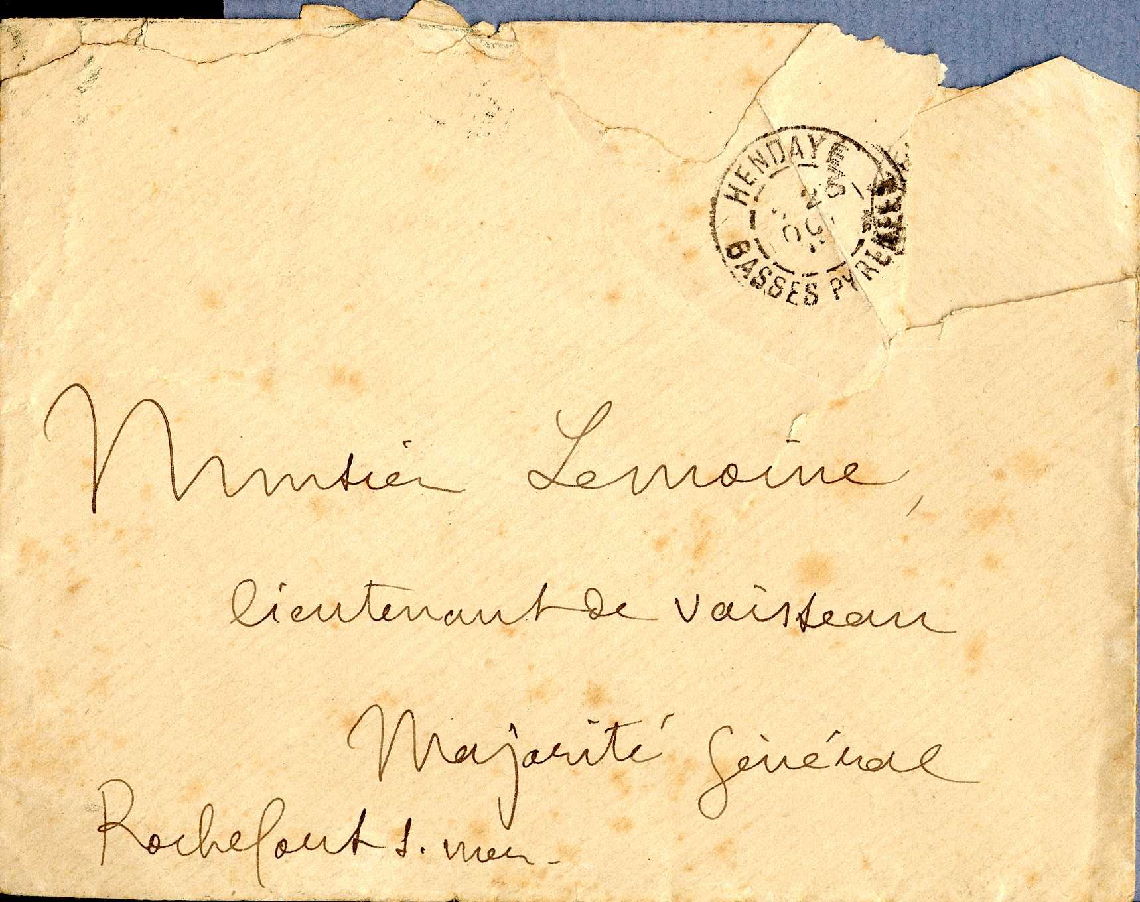 HENDAYE
BASSES PYRENEES
Monsieur Lemoine,
lieutenant de vaisseau
Majorité Général
Rochefort s. mer.